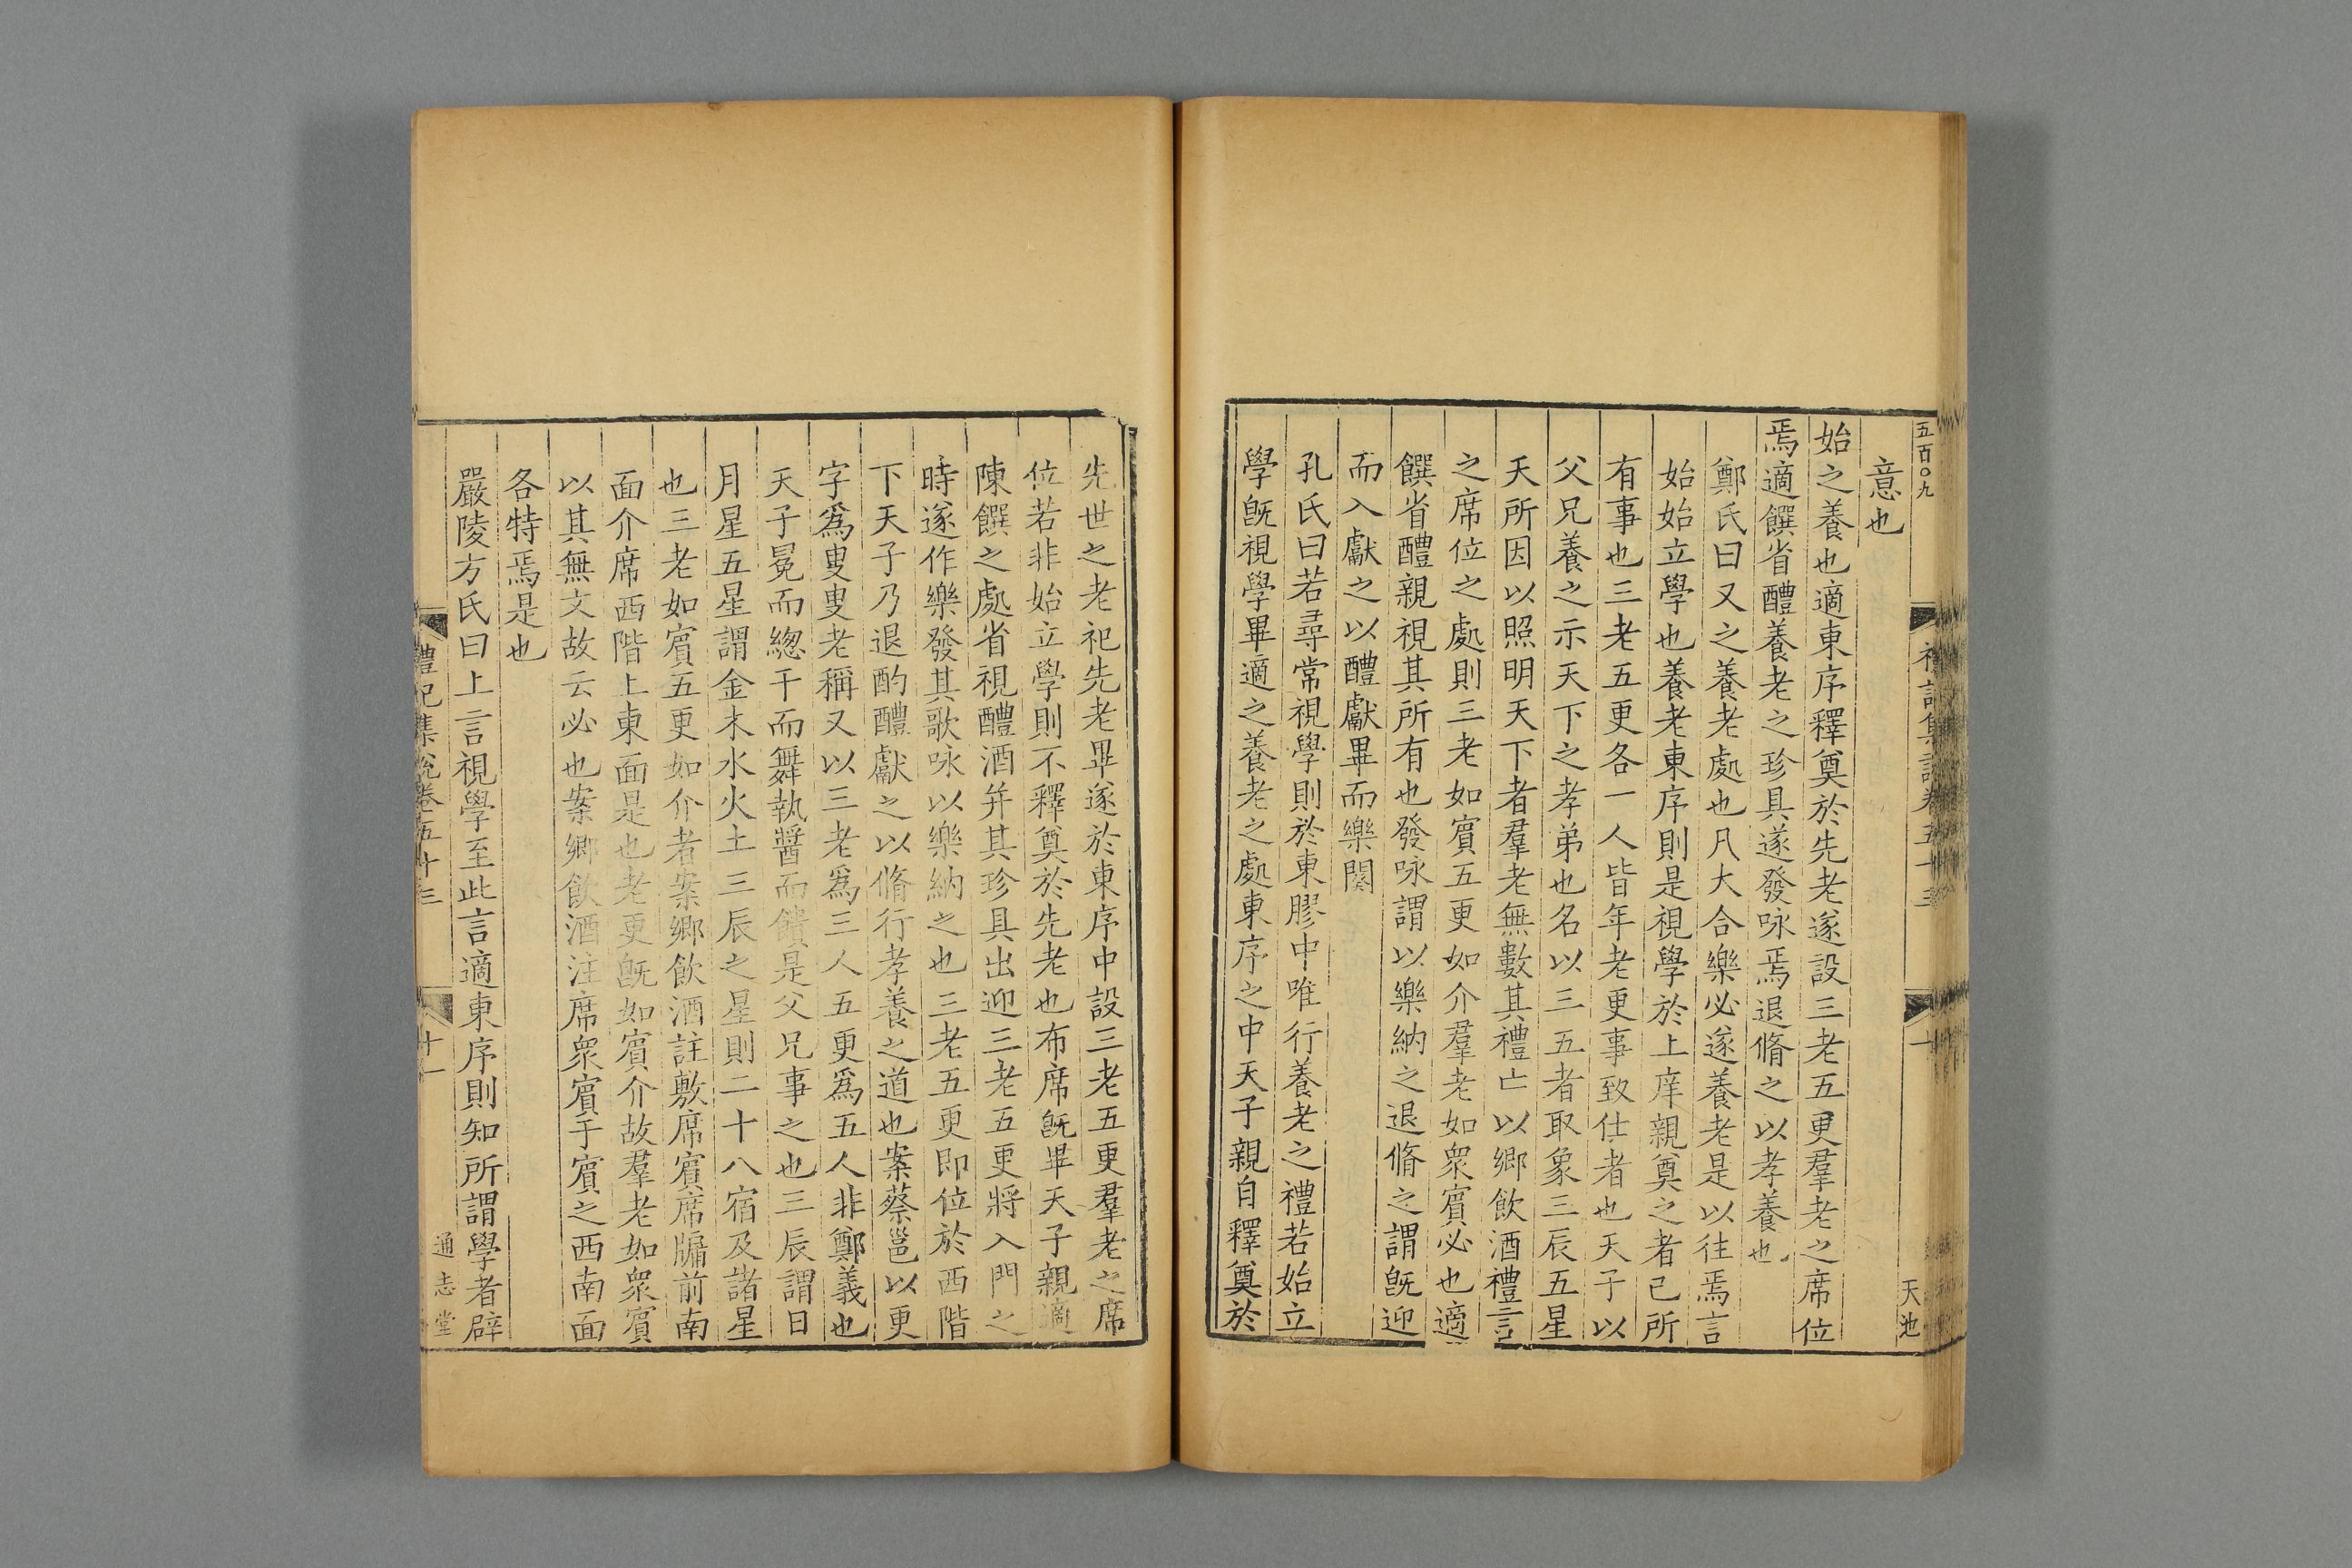 五百〇九
天池
意也
始之養也適東序釋奠於先老遂設三老五更羣老之席位
焉適饌省醴養老之珍具遂發咏焉退脩之以孝養也
鄭氏曰又之養老處也凡大合樂必遂養老是以往焉言
始始立學也養老東序則是視學於上庠親奠之者已所
有事也三老五更各一人皆年老更事致仕者也天子以
父兄養之示天下之孝弟也名以三五者取象三辰五星
天所因以照明天下者羣老無數其禮亡以鄉飲酒禮言
之席位之處則三老如賓五更如介羣老如眾賓必也適
饌省醴親視其所有也發咏謂以樂納之退脩之謂旣迎
而入獻之以醴獻畢而樂闋
孔氏曰若尋常視學則於東膠中唯行養老之禮若始立
學旣視學畢適之養老之處東序之中天子親自釋奠於
先世之老祀先老畢遂於東序中設三老五更羣老之席
位若非始立學則不釋奠於先老也布席旣畢天子親適
陳饌之處省視醴酒并其珍具出迎三老五更將入門之
時遂作樂發其歌咏以樂納之也三老五更即位於西階
下天子乃退酌醴獻之以脩行孝養之道也案蔡邕以更
字爲叟叟老稱又以三老爲三人五更爲五人非鄭義也
天子冕而緫干而舞執醬而饋是父兄事之也三辰謂日
月星五星謂金木水火土三辰之星則二十八宿及諸星
也三老如賓五更如介者案鄉飲酒註敷席賓席牖前南
面介席西階上東面是也老更旣如賓介故羣老如眾賓
以其無文故云必也案鄉飲酒注席眾賓于賓之西南面
各特焉是也
嚴陵方氏曰上言視學至此言適東序則知所謂學者辟
禮記集說卷五十三
十一
通志堂